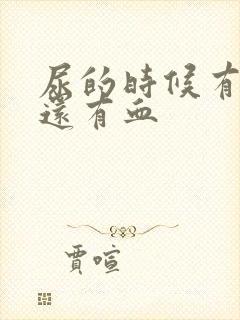 尿的時候有
還有血
賈喧